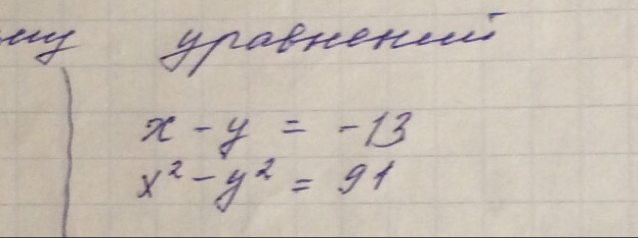 му уравнений
x - y = -13
x² - y² = 91